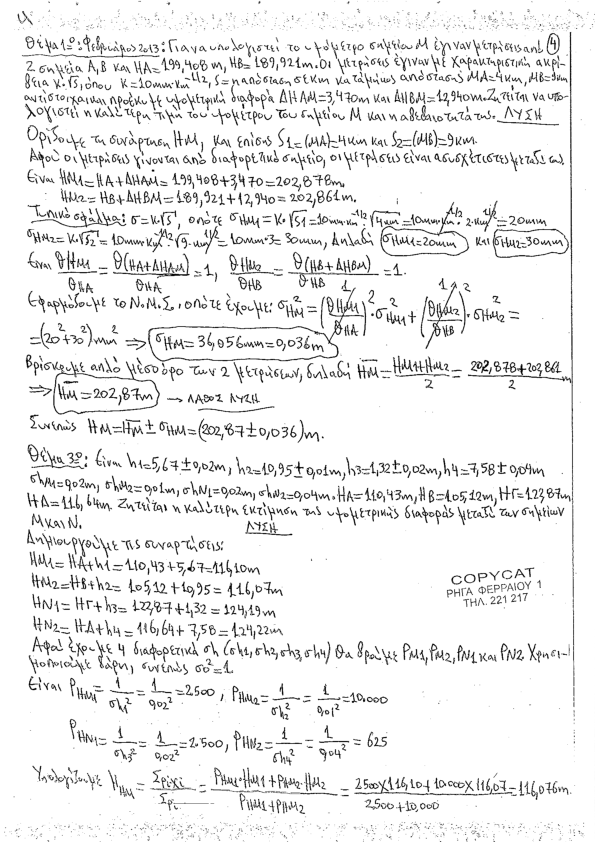 4
Θέμα 1ο: Φεβρουάριος 2013: Για να υπολογιστεί το υψόμετρο σημείου Μ έγιναν μετρήσεις από
2 σημεία Α, Β και HA=199,408m, HB=189,921m. Οι μετρήσεις έγιναν με χαρακτηριστική ακρί-
βεια K·√S, όπου K=10mm·km^-1/2, S=η απόσταση σε km και αμοιβαίως αποστάσεις MA=4km, MB=9km
αντίστοιχα και προέκυψε υψομετρική διαφορά ΔHAM=3,470m και ΔHBM=12,940m. Ζητείται να υπο-
λογιστεί η καλύτερη τιμή του υψομέτρου του σημείου Μ και η αβεβαιότητά της. ΛΥΣΗ
Ορίζουμε τη συνάρτηση HM, και επίσης S1=(MA)=4km και S2=(MB)=9km.
Αφού οι μετρήσεις γίνονται από διαφορετικό σημείο, οι μετρήσεις είναι ασυσχέτιστες μεταξύ των
Είναι HM1=HA+ΔHAM=199,408+3,470=202,878m.
HM2=HB+ΔHBM=189,921+12,940=202,861m.
Τυπικό σφάλμα: σ=K·√S, οπότε σHM1=K·√S1=10mm·km^-1/2·√4km=10mm·km^-1/2·2·km^1/2=20mm
σHM2=K·√S2=10mm·km^-1/2·√9·km^1/2=10mm·3=30mm, Δηλαδή σHM1=20mm και σHM2=30mm
Είναι ϑHM1/ϑHA=ϑ(HA+ΔHAM)/ϑHA=1, ϑHM2/ϑHB=ϑ(HB+ΔHBM)/ϑHB=1.
Εφαρμόζουμε το Ν.Μ.Σ, οπότε έχουμε: σHM²=(ϑHM1/ϑHA)²·σHM1²+(ϑHM2/ϑHB)²·σHM2²=
=(20²+30²)mm² ⇒ σHM=36,056mm=0,036m
Βρίσκουμε απλό μέσο όρο των 2 μετρήσεων, δηλαδή HM=HM1+HM2/2=202,878+202,861/2 m
⇒ HM=202,87m → ΛΑΘΟΣ ΛΥΣΗ
Συνεπώς HM=HM±σHM=(202,87±0,036)m.
Θέμα 3ο: Είναι h1=5,67±0,02m, h2=10,95±0,01m, h3=1,32±0,02m, h4=7,58±0,04m
σhM1=0,02m, σhM2=0,01m, σhN1=0,02m, σhN2=0,04m. HA=110,43m, HB=105,12m, HΓ=122,87m
HΔ=116,64m. Ζητείται η καλύτερη εκτίμηση της υψομετρικής διαφοράς μεταξύ των σημείων
Μ και Ν. ΛΥΣΗ
Δημιουργούμε τις συναρτήσεις:
HM1=HA+h1=110,43+5,67=116,10m
HM2=HB+h2=105,12+10,95=116,07m
HN1=HΓ+h3=122,87+1,32=124,19m
HN2=HΔ+h4=116,64+7,58=124,22m
COPYCAT
ΡΗΓΑ ΦΕΡΡΑΙΟΥ 1
ΤΗΛ. 221 217
Αφού έχουμε 4 διαφορετικά σh (σh1,σh2,σh3,σh4) θα βρούμε PM1,PM2,PN1 και PN2. Χρησι-
μοποιούμε βάρη, συνεπώς σο²=1
Είναι PHM1=1/σh1²=1/0,02²=2500, PHM2=1/σh2²=1/0,01²=10.000
PHN1=1/σh3²=1/0,02²=2.500, PHN2=1/σh4²=1/0,04²=625
Υπολογίζουμε HHM=Σpixi/Σpi=PHM1·HM1+PHM2·HM2/PHM1+PHM2=2500×116,10+10.000×116,07/2500+10.000=116,076m